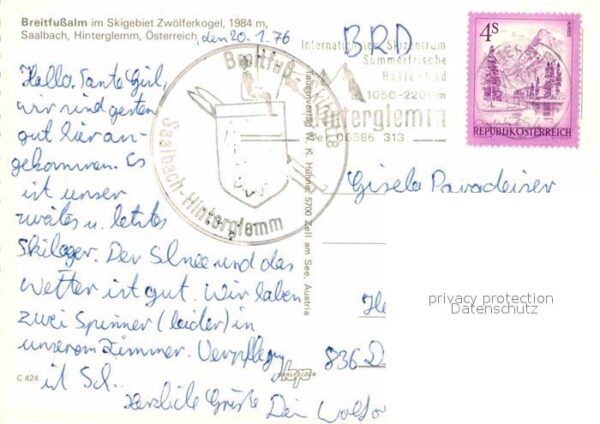 Breitfußalm im Skigebiet Zwölferkogel, 1984 m,
Saalbach, Hinterglemm, Österreich,
den 20.1.76
Hallo Tante Gisl,
wir sind gestern
gut hier an-
gekommen. Es
ist unser
zweites u. letztes
Skilager. Der Schnee und das
Wetter ist gut. Wir haben
zwei Spinner (leider) in
unserem Zimmer. Verpflegung
ist Sch..
Herzliche Grüße Dein
C 424
Breitfuß
Hütte
Saalbach-Hinterglemm
W. K. Hübner 5700 Zell am See, Austria
BRD
Internation Skizentrum
Sommerfrische
Hallenbad
1050-2200m
Hinterglemm
Tel 06586 313
4S
REPUBLIK ÖSTERREICH
Gisela Paradeiser
He
836 D
privacy protection
Datenschutz